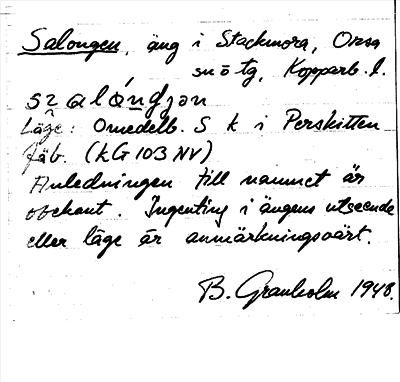 Salongen, äng i Stackmora, Orsa
sn ö tg, Kopparb. l.
szalóngjən
Läge: Omedelb. S k i Perskitten
fäb. (kG 103 NV)
Anledningen till namnet är
obekant. Ingenting i ängens utseende
eller läge är anmärkningsvärt.
B. Granholm 1948.